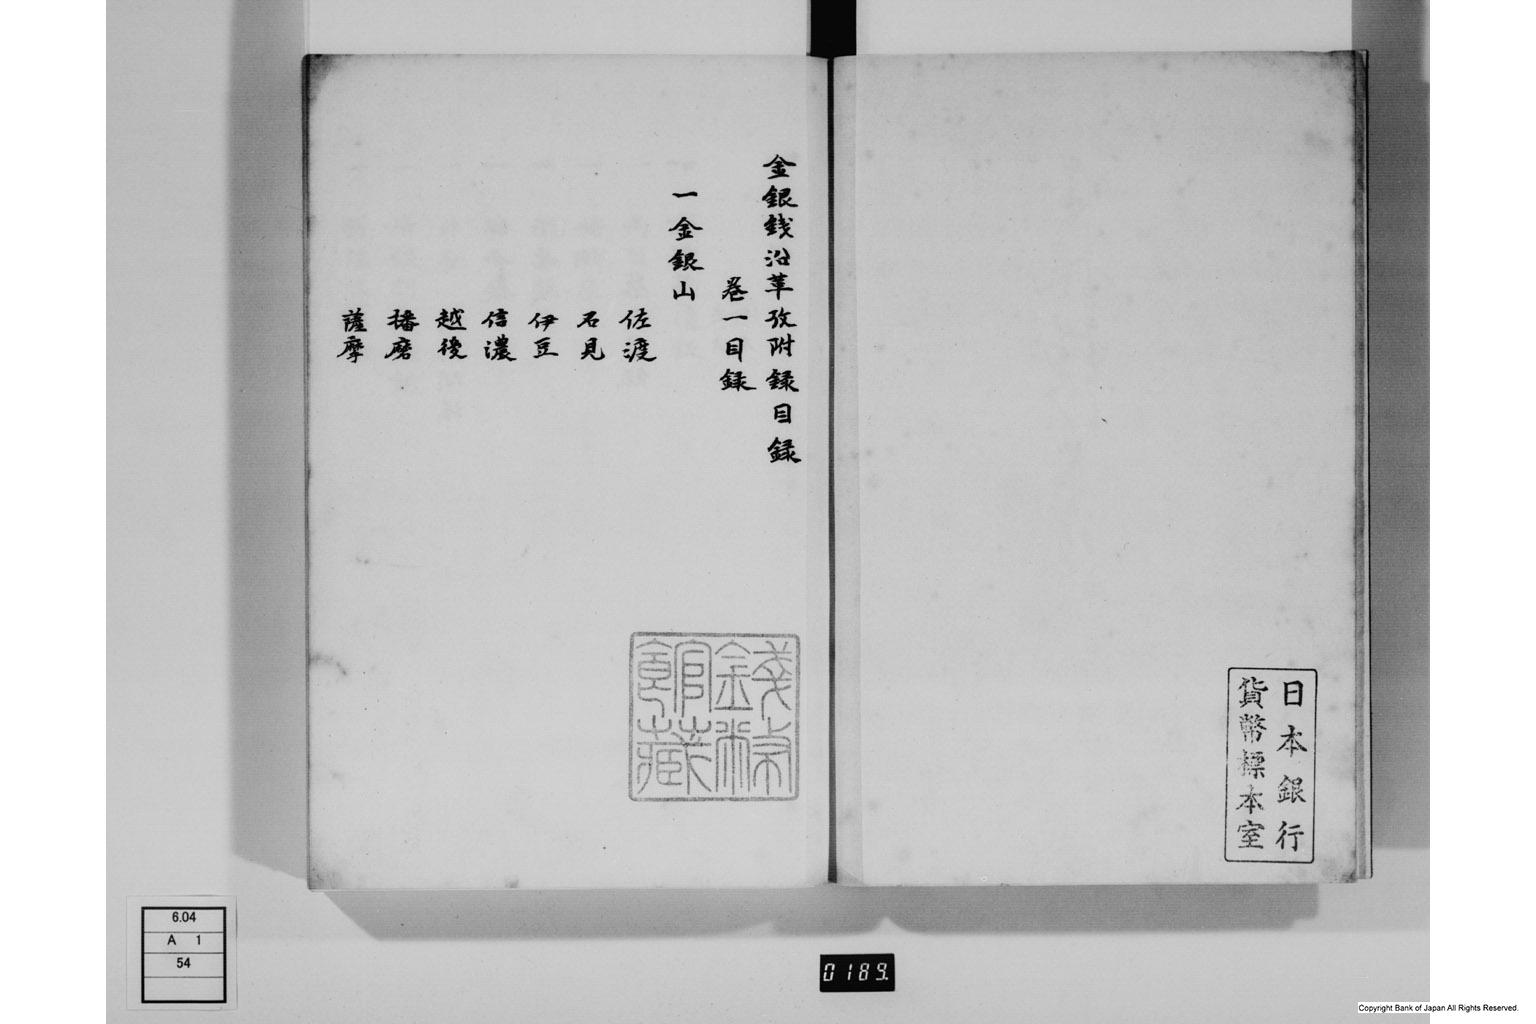 日本銀行
貨幣標本室
金銀銭沿革攷附録目録
巻一目録
一金銀山
佐渡
石見
伊豆
信濃
越後
播磨
薩摩
錢幣
館藏
6.04
A 1
54
0189.
Copyright Bank of Japan All Rights Reserved.